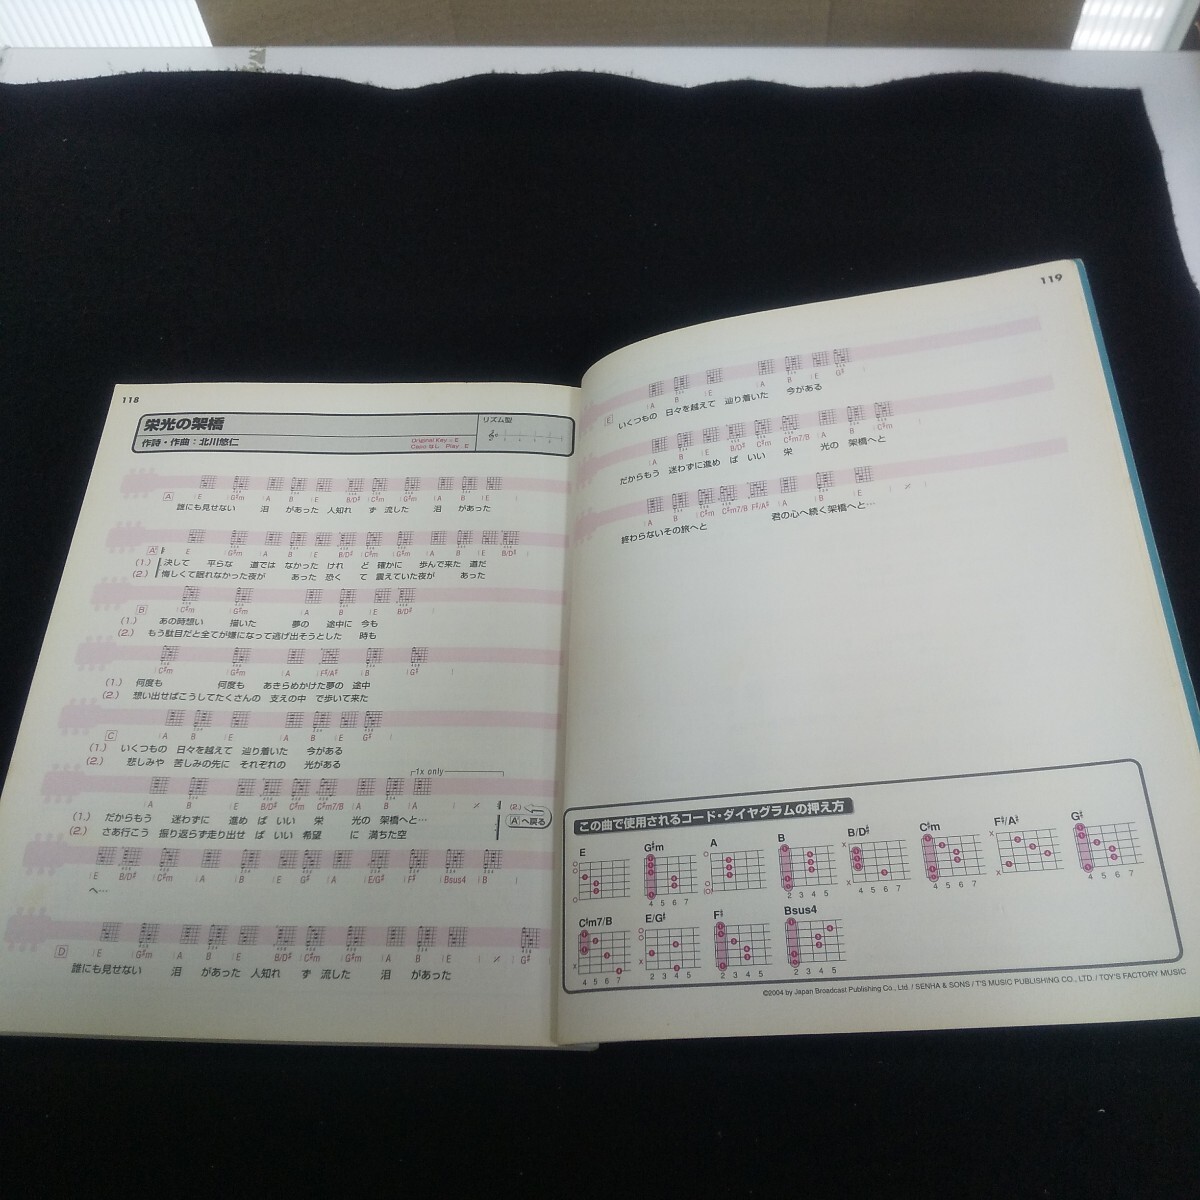 118
栄光の架橋
作詩・作曲：北川悠仁
Original Key：E
Capo なし Play：E
リズム型
A E G♯m A B E B/D♯ C♯m G♯m A B E
誰にも見せない 泪 があった 人知れ ず 流した 泪 があった
A' E G♯m A B E B/D♯ C♯m G♯m A B E B/D♯
(1.) 決して 平らな 道では なかった けれ ど 確かに 歩んで来た 道だ
(2.) 悔しくて眠れなかった夜が あった 恐く て 震えていた夜が あった
B C♯m G♯m A B E B/D♯
(1.) あの時想い 描いた 夢の 途中に 今も
(2.) もう駄目だと全てが嫌になって逃げ出そうとした 時も
C♯m G♯m A F♯/A♯ B G♯
(1.) 何度も 何度も あきらめかけた夢の 途中
(2.) 想い出せばこうしてたくさんの 支えの中 で歩いて来た
C A B E A B E G♯
(1.) いくつもの 日々を越えて 辿り着いた 今がある
(2.) 悲しみや 苦しみの先に それぞれの 光がある
1x only
A B E B/D♯ C♯m C♯m7/B A B A
(1.) だからもう 迷わずに 進め ば いい 栄 光の 架橋へと…
(2.) さあ行こう 振り返らず走り出せ ば いい 希望 に 満ちた空
(2.)
A'へ戻る
E B/D♯ C♯m A B E G♯ A E/G♯ F♯ Bsus4 B
へ…
D E G♯m A B E B/D♯ C♯m G♯m A B E G♯
誰にも見せない 泪 があった 人知れ ず 流した 泪 があった
119
E A B E A B E G♯
いくつもの 日々を越えて 辿り着いた 今がある
A B E B/D♯ C♯m C♯m7/B A B C♯m
だからもう 迷わずに進め ば いい 栄 光の 架橋へと
A B C♯m C♯m7/B F♯/A♯ A B E
終わらないその旅へと 君の心へ続く架橋へと…
この曲で使用されるコード・ダイヤグラムの押え方
E G♯m A B B/D♯ C♯m F♯/A♯ G♯
4 5 6 7 2 3 4 5 4 5 6 7 4 5 6 7 4 5 6 7
C♯m7/B E/G♯ F♯ Bsus4
4 5 6 7 2 3 4 5 2 3 4 5 2 3 4 5
©2004 by Japan Broadcast Publishing Co., Ltd. / SENHA & SONS / T'S MUSIC PUBLISHING CO., LTD. / TOY'S FACTORY MUSIC